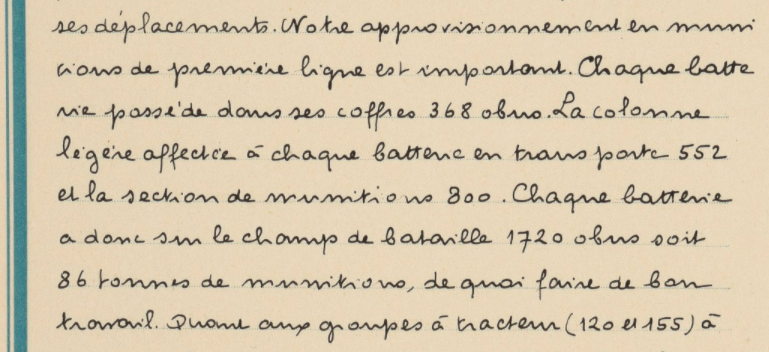 ses déplacements. Notre approvisionnement en muni
cions de première ligne est important. Chaque batte
rie possède dans ses coffres 368 obus. La colonne
légère affectée à chaque batterie en transporte 552
et la section de munitions 800. Chaque batterie
a donc sur le champ de bataille 1720 obus soit
86 tonnes de munitions, de quoi faire de bon
travail. Quant aux groupes à tracteur (120 et 155) à